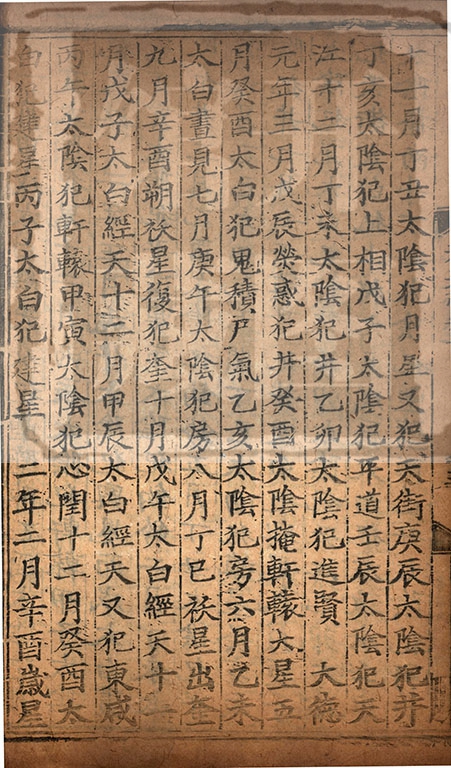 十一月丁丑太陰犯月星又犯天街庚辰太陰犯井
丁亥太陰犯上相戊子太陰犯平道壬辰太陰犯天
江十二月丁未太陰犯井乙卯太陰犯進賢　大德
元年三月戊辰熒惑犯井癸酉太陰掩軒轅大星五
月癸酉太白犯鬼積尸氣乙亥太陰犯房六月乙未
太白晝見七月庚午太陰犯房八月丁巳祅星出奎
九月辛酉朔祅星復犯奎十月戊午太白經天十一
月戊子太白經天十二月甲辰太白經天又犯東咸
丙午太陰犯軒轅甲寅太陰犯心閏十二月癸酉太
白犯建星丙子太白犯建星　二年二月辛酉歲星